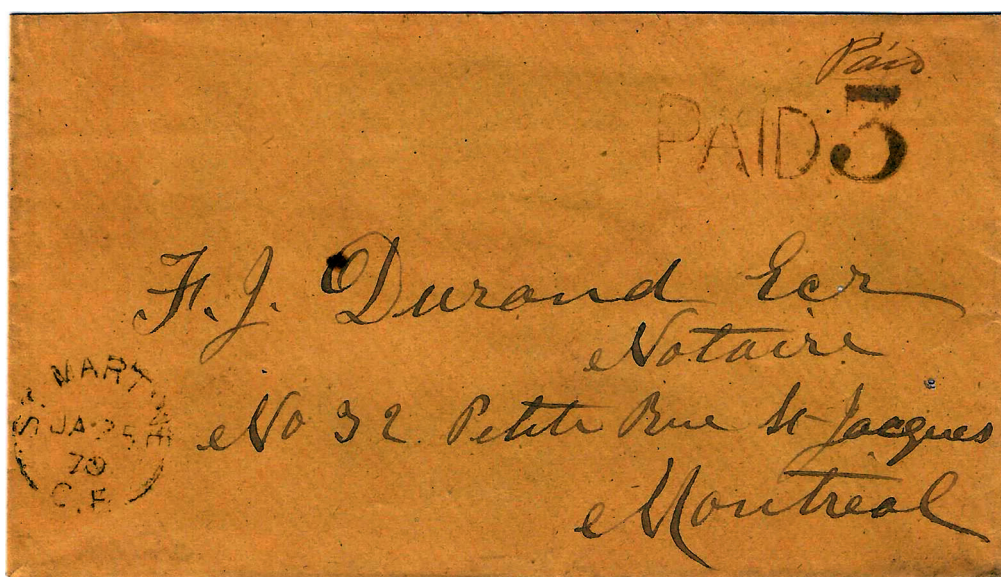 Paid
PAID 3
F. J. Durand Ecr
Notaire
No 32 Petite Rue St Jacques
Montréal
ST. MARTINE
JA 25
70
C.E.